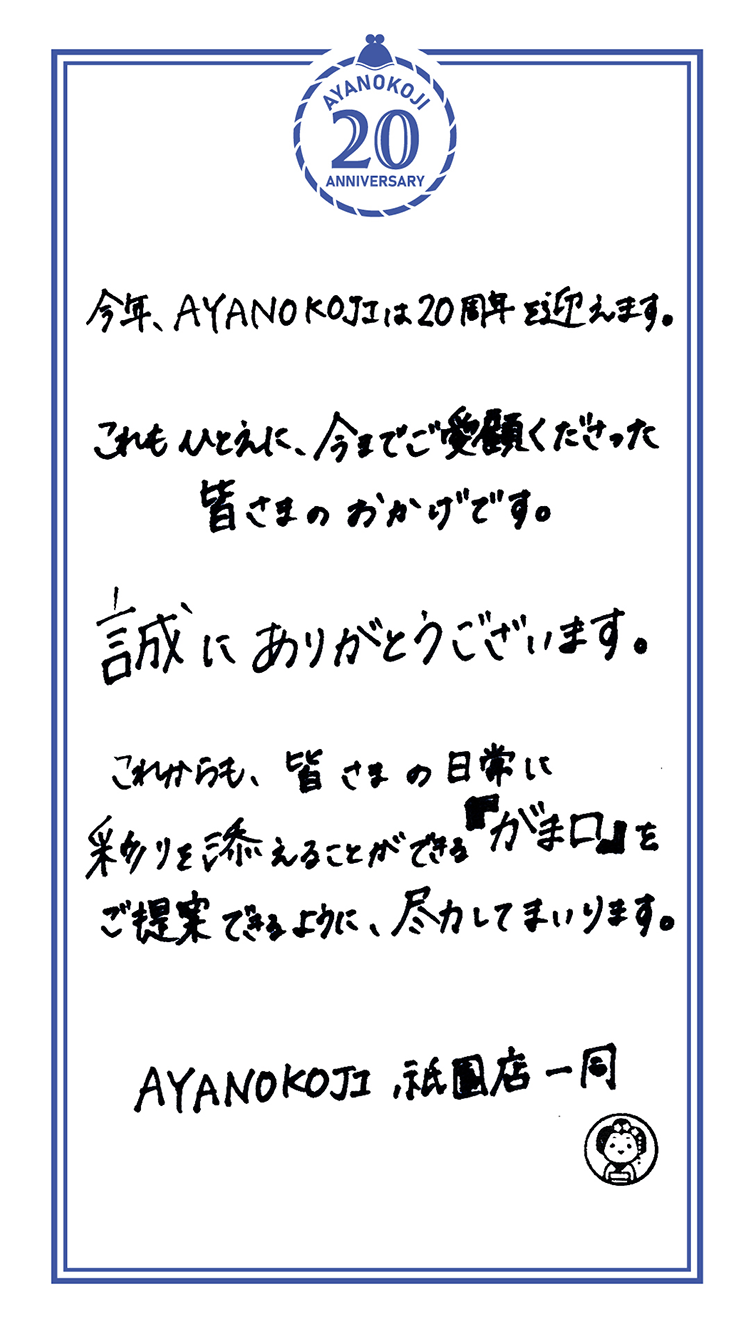 AYANOKOJI
20
ANNIVERSARY
今年、AYANOKOJIは20周年を迎えます。
これもひとえに、今までご愛顧くださった
皆さまのおかげです。
誠にありがとうございます。
これからも、皆さまの日常に
彩りを添えることができる『がま口』を
ご提案できるように、尽力してまいります。
AYANOKOJI 祇園店一同